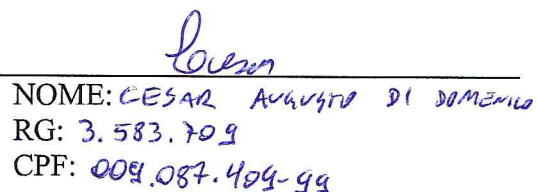 Cesar
NOME: CESAR AUGUSTO DI DOMENICO
RG: 3.583.709
CPF: 009.087.409-99